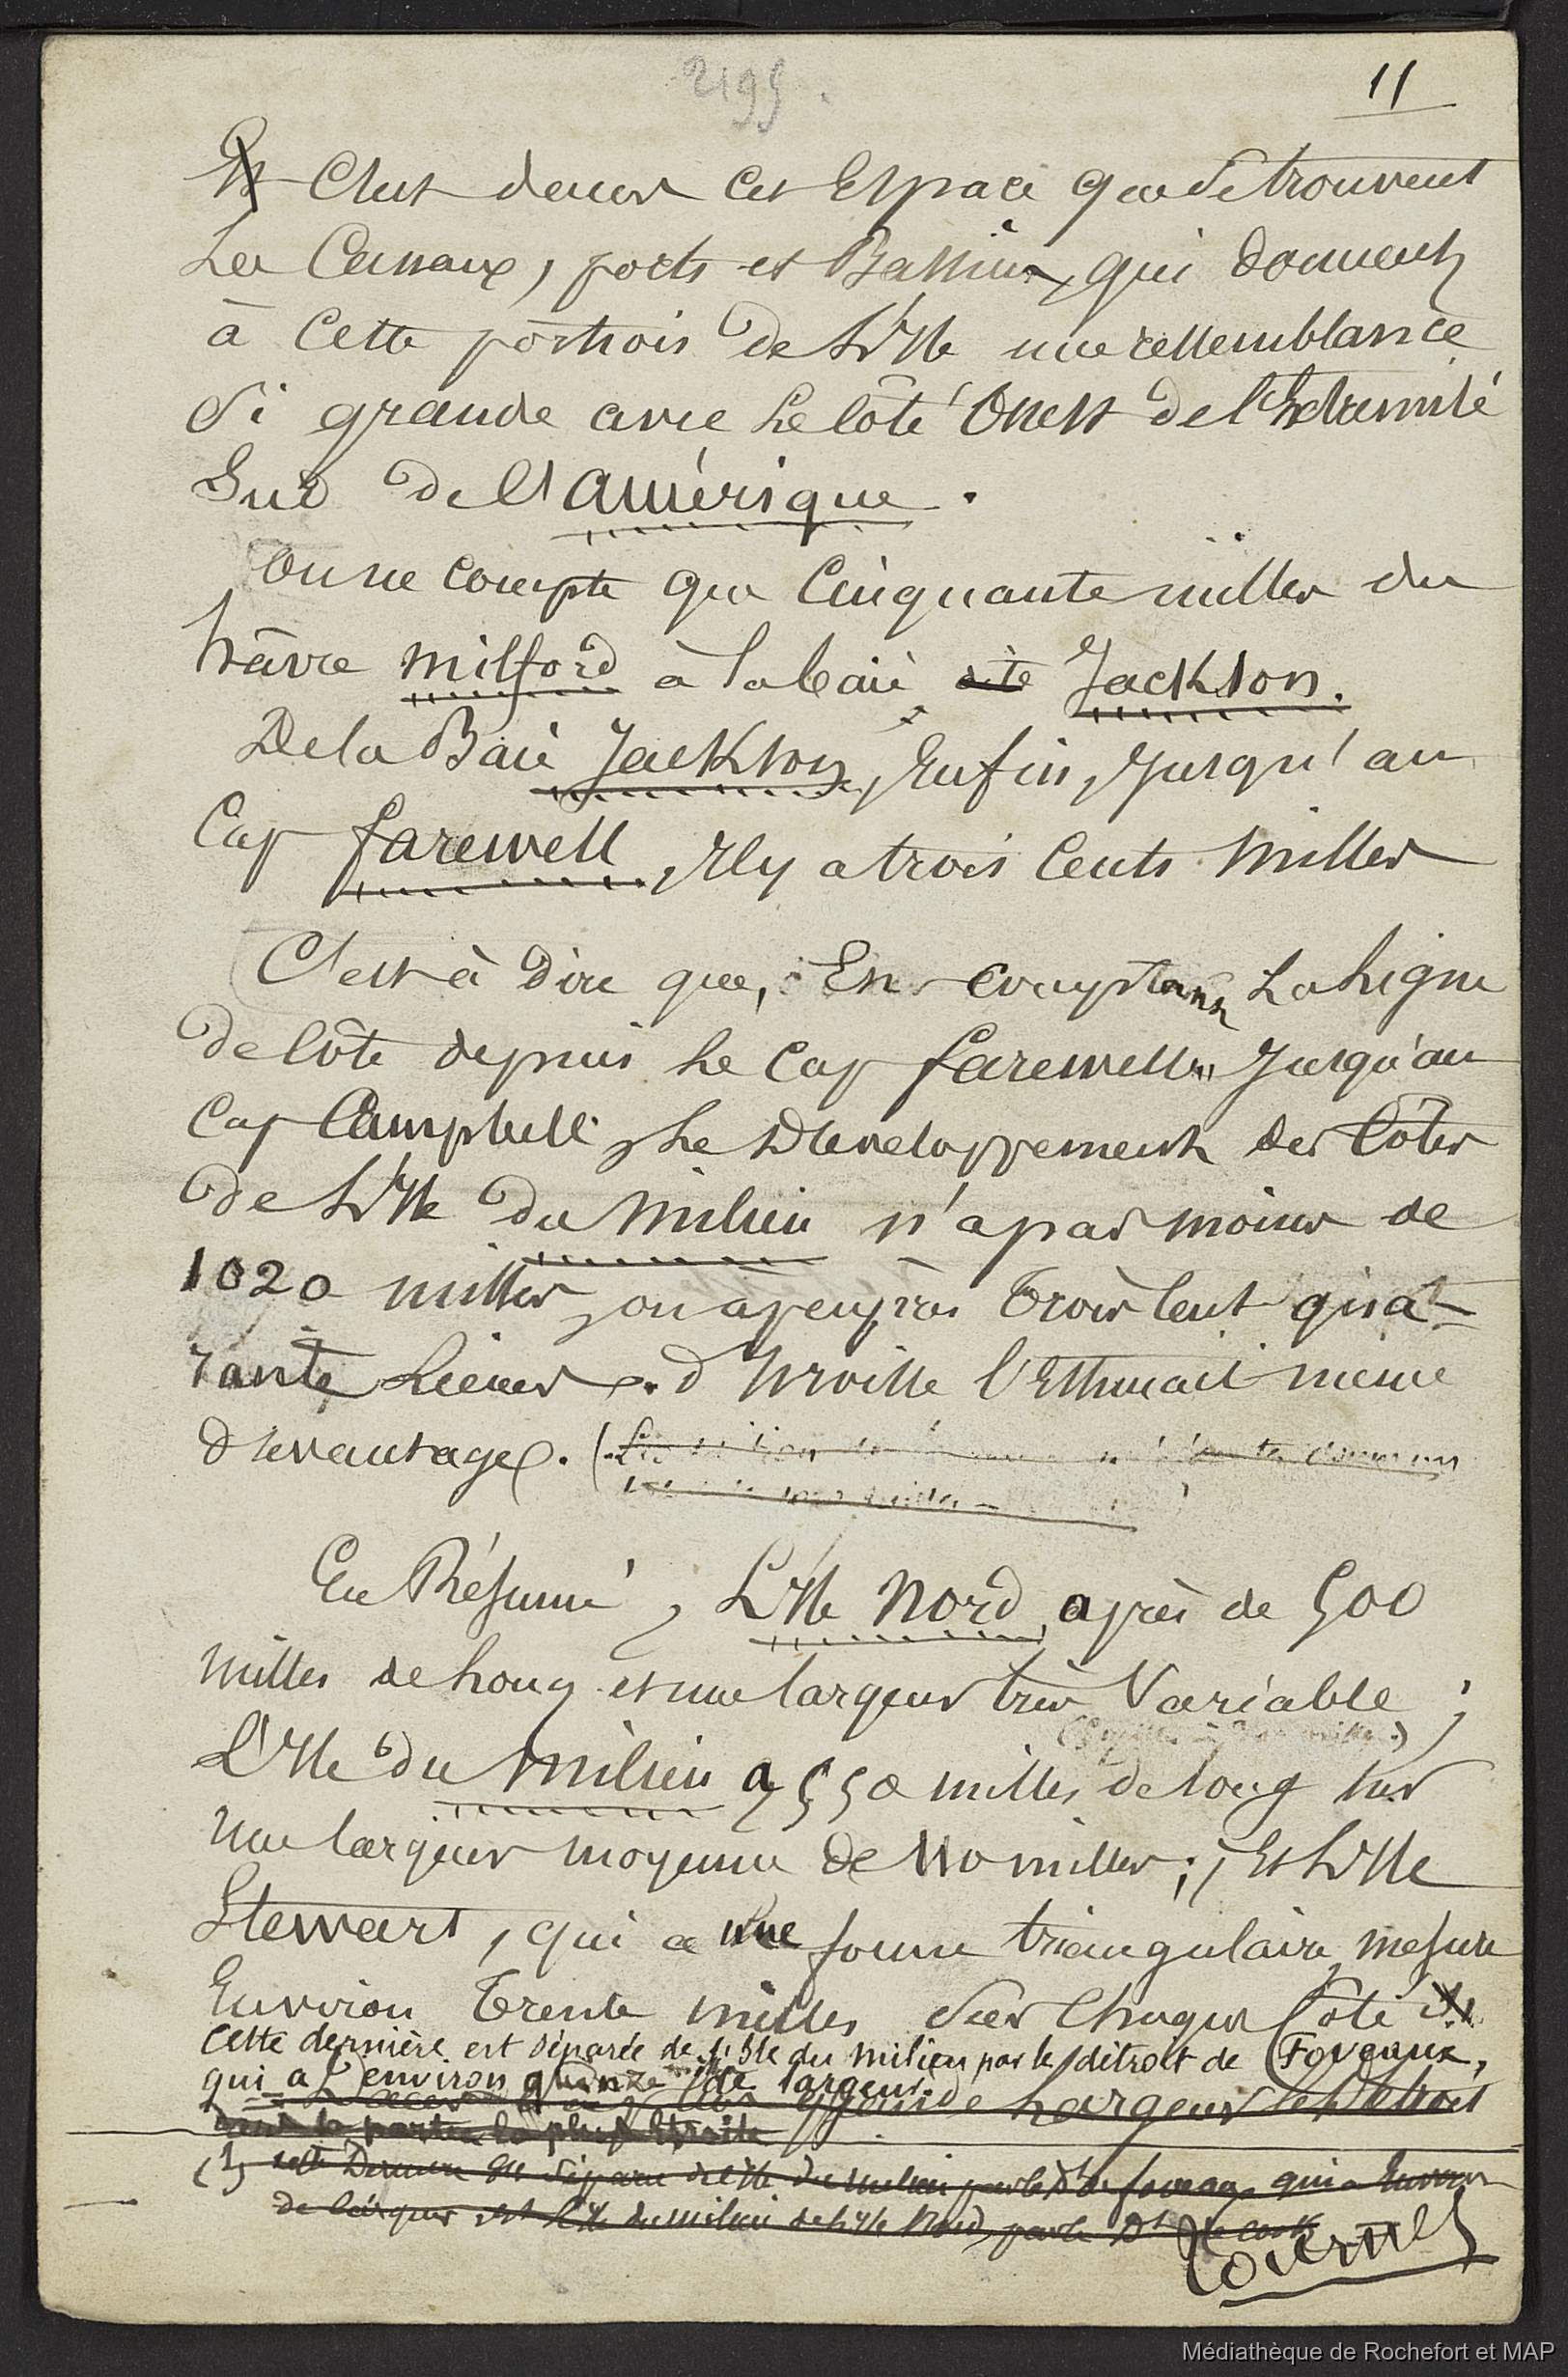 2199.
11
Et C'est dans cet Espace que se trouvent
Les Canaux, ports et Bassins, qui donnent
à Cette portion de L'Ile une ressemblance
Si grande avec Le Côté Ouest de l'Extremité
Sud de l'amérique.
On ne compte que Cinquante milles du
hâvre milford à la baie dite Jackson.
De la Baie Jackson, Enfin, Jusqu'au
Cap farewell, Il y a trois Cents Milles
C'est à Dire que, En comptant La Ligne
de Côte depuis Le Cap farewell Jusqu'au
Cap Campbell, Le Developpement des Côtes
de L'Ile du Milieu n'a pas moins de
1020 milles, ou à peu près Trois Cent qua-
rante Lieues. d'Urville l'Estimait meme
d'avantage.
En Résumé, L'Ile Nord a près de 500
Milles de Long et une largeur très Variable;
L'Ile du Milieu a 550 milles de long sur
Une largeur moyenne de 110 milles; Et L'Ile
Stewart, qui a une forme triangulaire, mesure
Environ Trente milles sur Chaque Côté
Cette dernière est séparée de l'île du milieu par le détroit de Foveaux,
qui a environ quinze de largeur.
de Largeur le Detroit
dont la partie la plus Etroite
(1) cette Derniere est séparée de l'Ile du milieu par le D.t de foveaux qui a Environ
de largeur et l'Ile du milieu de L'Ile Nord, par le D.t de Cook
Médiathèque de Rochefort et MAP